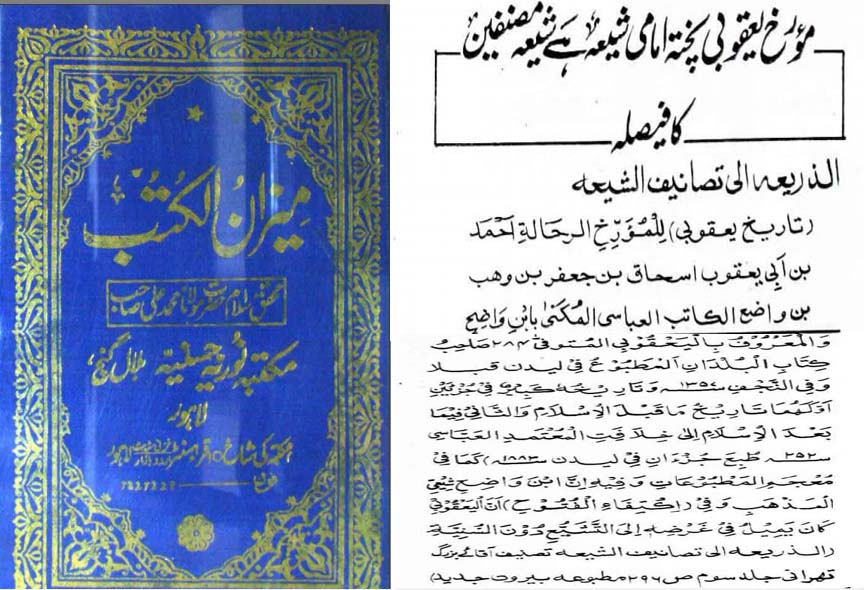 میزان الکتب
محقق اسلام حضرت مولانا محمد علی صاحب
مکتبہ نوریہ حسنیہ بلال گنج،
لاہور
مکتبہ کی شاخ
لاہور
فون
7227228
مؤرخ یعقوبی پختہ امامی شیعہ ہے شیعہ مصنفین
کا فیصلہ
الذریعہ الی تصانیف الشیعہ
(تاریخ یعقوبی) لِلْمُؤَرِّخِ الرحالۃ اَحْمَد
بن اَبِی یعقوب اسحاق بن جعفر بن وهب
بن واضع الکاتب العباسی المُکَنّٰی بابْنِ وَاضِحْ
وَالْمَعْرُوْفُ بِالْیَعْقُوْبِی الْمُتَوَفی ۲۸۴ صَاحِبُ
کِتَابِ الْبُلْدَانِ اَلْمَطْبُوْعِ فِیْ لِیدَن قَبْلاً
وَفِی النَّجَفِ ۱۳۵۷ھ وَتَارِیْخُهٗ کَبِیْرٌ فِیْ جُزْئَیْنِ
اَوَّلُهُمَا تَارِیْخُ مَا قَبْلَ الْاِسْلَامِ وَالثَّانِی فِیْمَا
بَعْدَ الْاِسْلَامِ اِلٰی خِلَافَتِ الْمُعْتَمِدِ الْعَبَّاسِی
۲۵۲ھ طُبِعَ جُزْءَانِ فِیْ لِیدَن ۱۸۸۳ء (کَمَا فِیْ
مُعْجَمِ الْمَطْبُوْعَاتِ وَفِیْهِ اِنَّ ابْنَ وَاضِحٍ شِیْعِیُّ
الْمَذْهَبِ وَفِیْ (اِکْتِفَاءِ الْقُنُوْعِ) اَنَّ الْیَعْقُوْبِیَّ
کَانَ یَمِیْلُ فِیْ غَرْضِهٖ اِلَی التَّشَیُّعِ دُوْنَ السُّنِّیَّةِ
(الذریعہ الی تصانیف الشیعہ تصنیف آقائے بزرگ
تہرانی جلد سوم ص ۲۹۶ مطبوعہ بیروت جدید)